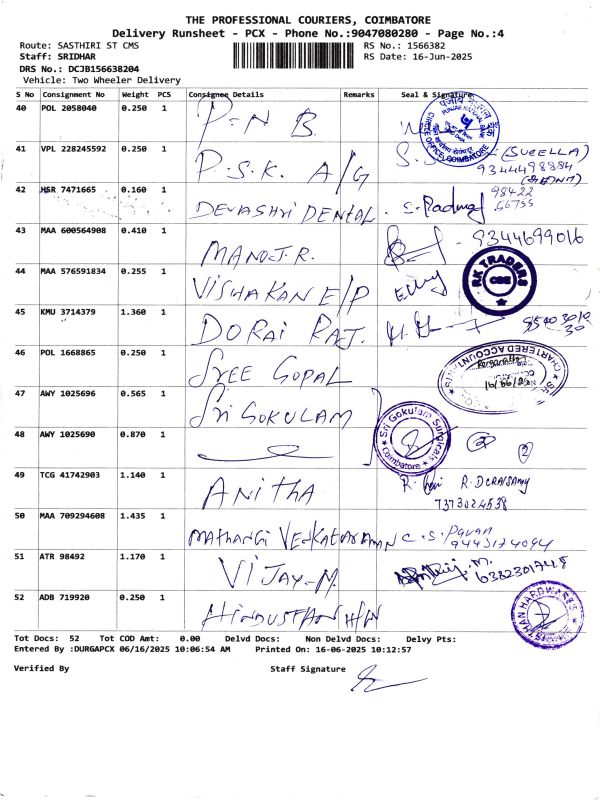 THE PROFESSIONAL COURIERS, COIMBATORE
Delivery Runsheet - PCX - Phone No.:9047080280 - Page No.:4
Route: SASTHIRI ST CMS RS No.: 1566382
Staff: SRIDHAR RS Date: 16-Jun-2025
DRS No.: DCJB156638204
Vehicle: Two Wheeler Delivery
S No Consignment No Weight PCS Consignee Details Remarks Seal & Signature
40 POL 2058040 0.250 1 P-N B.
41 VPL 228245592 0.250 1 P.S.K. A/G
9344498884
42 HSR 7471665 0.160 1 DEVASHRI DENTAL. S. Padma 98422
66755
43 MAA 600564908 0.410 1 MANOJ.R. 9344699016
44 MAA 576591834 0.255 1 VISHAKAN E/P RK TRADERS CBE
45 KMU 3714379 1.360 1 DORAI RAJ.
46 POL 1668865 0.250 1 SREE GOPAL CHARTERED ACCOUNTANT 16/06/25
47 AWY 1025696 0.565 1 Sri GOKULAM
48 AWY 1025690 0.870 1 Sri Gokulam Surgicals Coimbatore 2 2
49 TCG 41742903 1.140 1 ANITHA R. DORAISAMY
7373024538
50 MAA 709294608 1.435 1 MATHANGI VENKATARAMAN C.S. Pavan
9443174094
51 ATR 98492 1.170 1 VIJAY-M. 6382301748
52 ADB 719920 0.250 1 HINDUSTAN H/W
Tot Docs: 52 Tot COD Amt: 0.00 Delvd Docs: Non Delvd Docs: Delvy Pts:
Entered By :DURGAPCX 06/16/2025 10:06:54 AM Printed On: 16-06-2025 10:12:57
Verified By Staff Signature